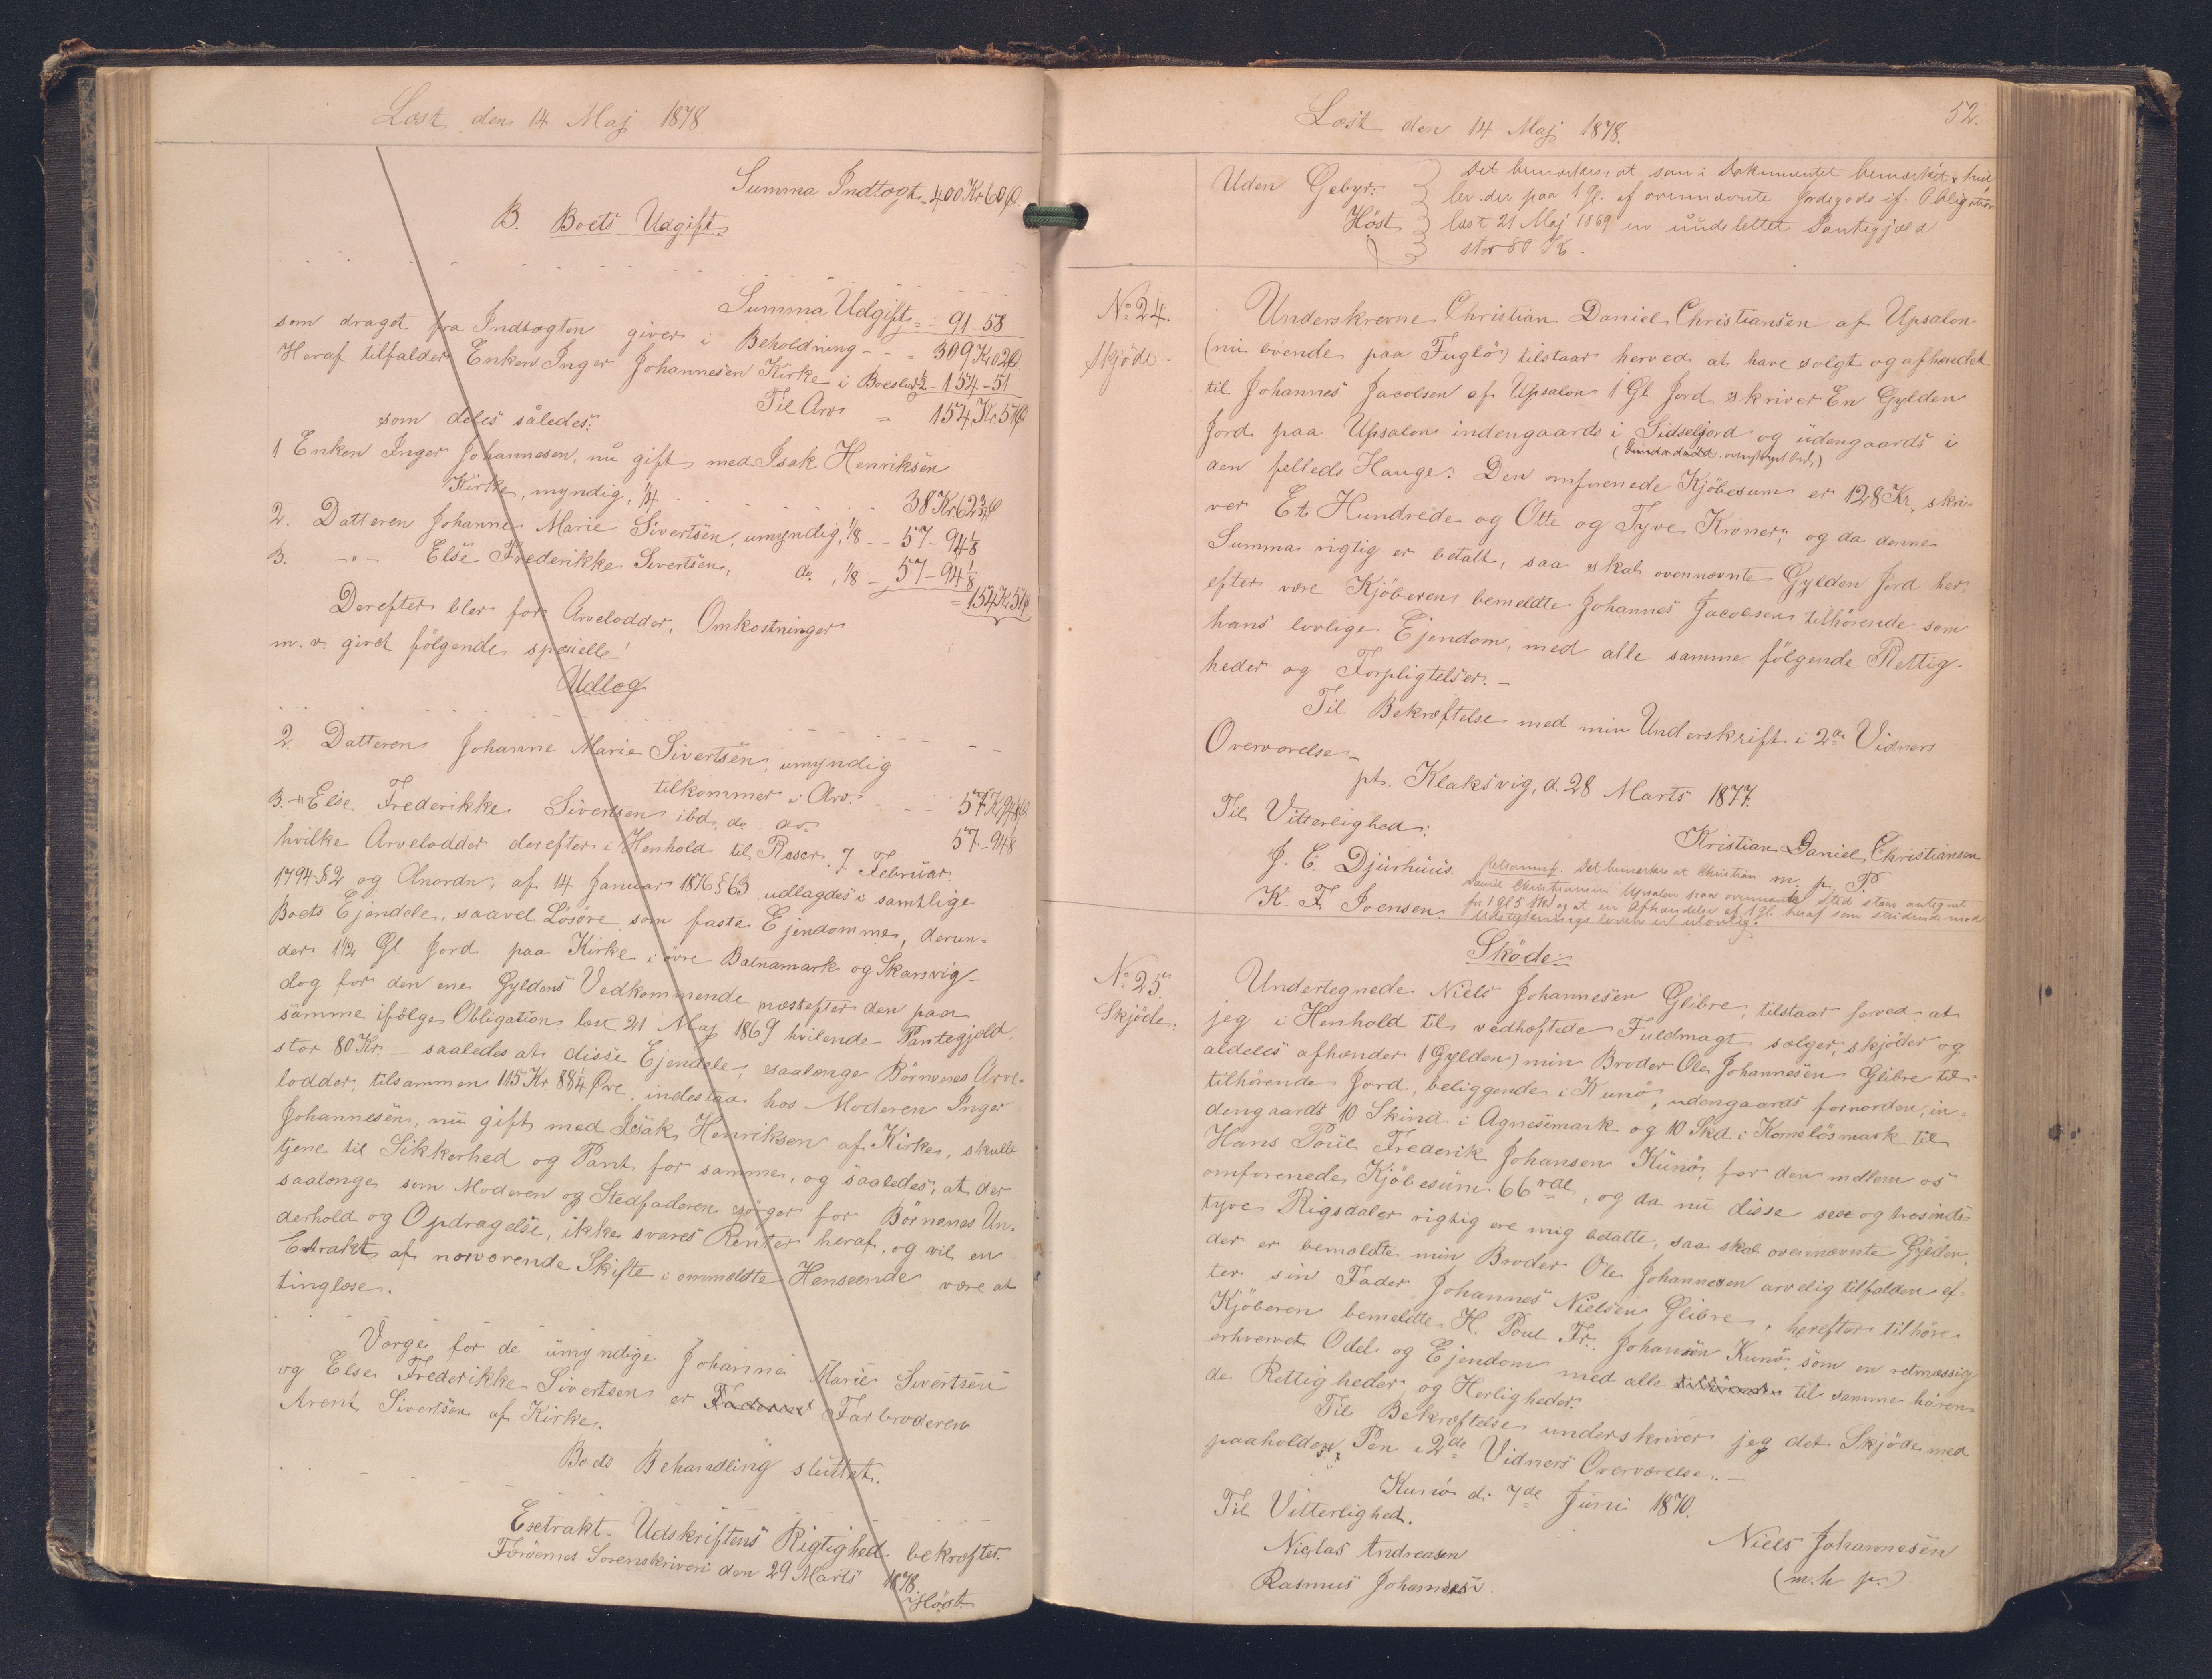 Læst den 14 Maj 1878.
Summa Indtægt 400 Kr 60 Ø.
B. Boets Udgift.
Summa Udgift = 91-58
som draget fra Indtægten giver i Beholdning - - = 309 Kr 02 Ø
Heraf tilfalder Enken Inger Johannesen Kirke i Boeslod ½ - 154-51
Til Arv = 154 Kr 51 Ø
som deles således:
1 Enken Inger Johannesen, nu gift med Isak Henriksen
Kirke, myndig, ¼ 38 Kr 62¾ Ø
2. Datteren Johanne Marie Sivertsen, umyndig, 1/8 - - 57-94 1/8
3. -"- Else Frederikke Sivertsen, do. , 1/8 - 57-94 1/8
= 154 Kr 51 Ø
Derefter blev for Arvelodder, Omkostninger
m. v. givet følgende specielle
Udlæg
2. Datteren Johanne Marie Sivertsen, umyndig
tilkommer i Arv. - - - 57 Kr 94 1/8 Ø
3. -"- Else Frederikke Sivertsen ibd. do. av. 57-94 1/8
hvilke Arvelodder derefter i Henhold til Rescr. 7. Februar.
1794 § 2 og Anordn. af 14 Januar 1876 § 63 udlagdes i samtlige
Boets Ejendele, saavel Løsøre som faste Ejendomme, derun-
der 1 1/2 Gl Jord paa Kirke i øvre Batnamark og Skarsvig -
dog for den ene Gyldens Vedkommende næstefter den paa
samme ifølge Obligation læst 21 Maj 1869 hvilende Pantegjæld,
stor 80 Kr. - saaledes at disse Ejendele, saalænge Börnenes Arve-
lodder, tilsammen 115 Kr 88¼ Øre, indestaa hos Moderen Inger
Johannesen, nu gift med Isak Henriksen af Kirke, skulle
tjene til Sikkerhed og Pant for samme, og saaledes, at der
saalænge som Moderen og Stedfaderen sørger for Börnenes Un-
derhold og Opdragelse, ikke svares Renter heraf, og vil en
Extrakt af nærværende Skifte i ommeldte Henseende være at
tinglæse.
Værge for de umyndige Johanna Marie Sivertsen
og Else Frederikke Sivertsen er Faderen Farbroderen
Arent Sivertsen af Kirke.
Boets Behandling sluttet.
Extrakt-Udskriftens Rigtighed bekræftes.
Færøernes Sorenskriveri den 29 Marts 1878.
Høst
Læst den 14 Maj 1878.
52.
Uden Gebyr.
Høst
Det bemærkes, at som i Dokumentet bemærket hvi-
ler der paa 1 Gl. af ovennævnte Jordegods if. Obligation
læst 21 Maj 1869 en uudslettet Pantegjæld
stor 80 Kr.
No. 24.
Skjöde.
Underskrevne Christian Daniel Christiansen af Upsalen
(nu boende paa Fuglö) tilstaar herved at have solgt og afhændet
til Johannes Jacobsen af Upsalen 1 Gl Jord, skriver En Gylden
Jord paa Upsalen indengaards i Sidseljord og udengaards i
den fælleds Hauge. Den omforenede Kjöbesum er 128 Kr, skri-
ver Et Hundrede og Otte og Tyve Kroner; og da denne
Summa rigtig er betalt, saa skal ovennævnte Gylden Jord her-
efter være Kjöberen bemeldte Johannes Jacobsen tilhörende som
hans lovlige Ejendom, med alle samme fölgende Rettig-
heder og Forpligtelser. -
Til Bekræftelse med min Underskrift i 2de Vidners
Overværelse -
pt. Klaksvig, d. 28 Marts 1877.
Til Vitterlighed:
Kristian Daniel Christiansen
J. C. Djurhuus.
m. p. P.
K. F. Joensen.
Retsanm. Det bemærkes at Christian
Daniel Christiansen Upsalen paa ovennævnte Sted staar antegnet
for 1 Gl 5 Skd og at en Afhændelse af 1 Gl. heraf som stridende mod
Udstykningsloven er ulovlig.
Sköde
No. 25.
Skjöde.
Undertegnede Niels Johannesen Glibre, tilstaar herved at
jeg i Henhold til vedhæftede Fuldmagt sælger, skjöder og
aldeles afhænder 1 Gylden min Broder Ole Johannesen Glibre til-
tilhörende Jord, beliggende i Kunö, udengaards fornorden, in-
dengaards 10 Skind i Agnesemark og 10 Skd i Komelösmark til
Hans Poul Frederik Johansen Kunö, for den mellem os
omforenede Kjöbesum 66 rdl, og da nu disse sex og tresinds-
tyve Rigsdaler rigtig ere mig betalte, saa skal ovennævnte Gylden,
der er bemeldte min Broder Ole Johannesen arvelig tilfalden ef-
ter sin Fader Johannes Nielsen Glibre, herefter tilhöre
Kjöberen bemeldte H. Poul Fr. Johansen Kunö, som en retmæssig
erhvervet Odel og Ejendom med alle tilhörende til samme hören-
de Rettigheder og Herligheder.
Til Bekræftelse underskriver jeg det Skjöde med
paaholden Pen i 2de Vidners Overværelse. -
Kunö d. 7de Juni 1870.
Til Vitterlighed.
Niclas Andreasen
Niels Johannesen
Rasmus Johannesen.
(m. h. p.)